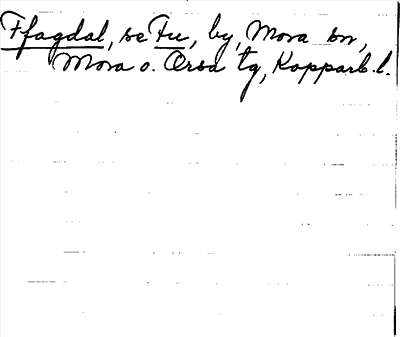 Ffagdal, se Fu, by, Mora sn,
Mora o. Orsa tg, Kopparb. l.